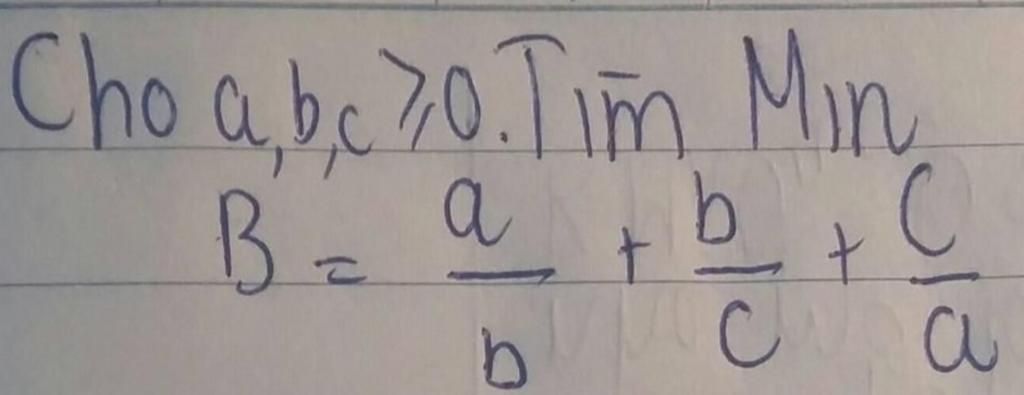 Cho a,b,c ⩾0. Tìm Min
B = a/b + b/c + c/a